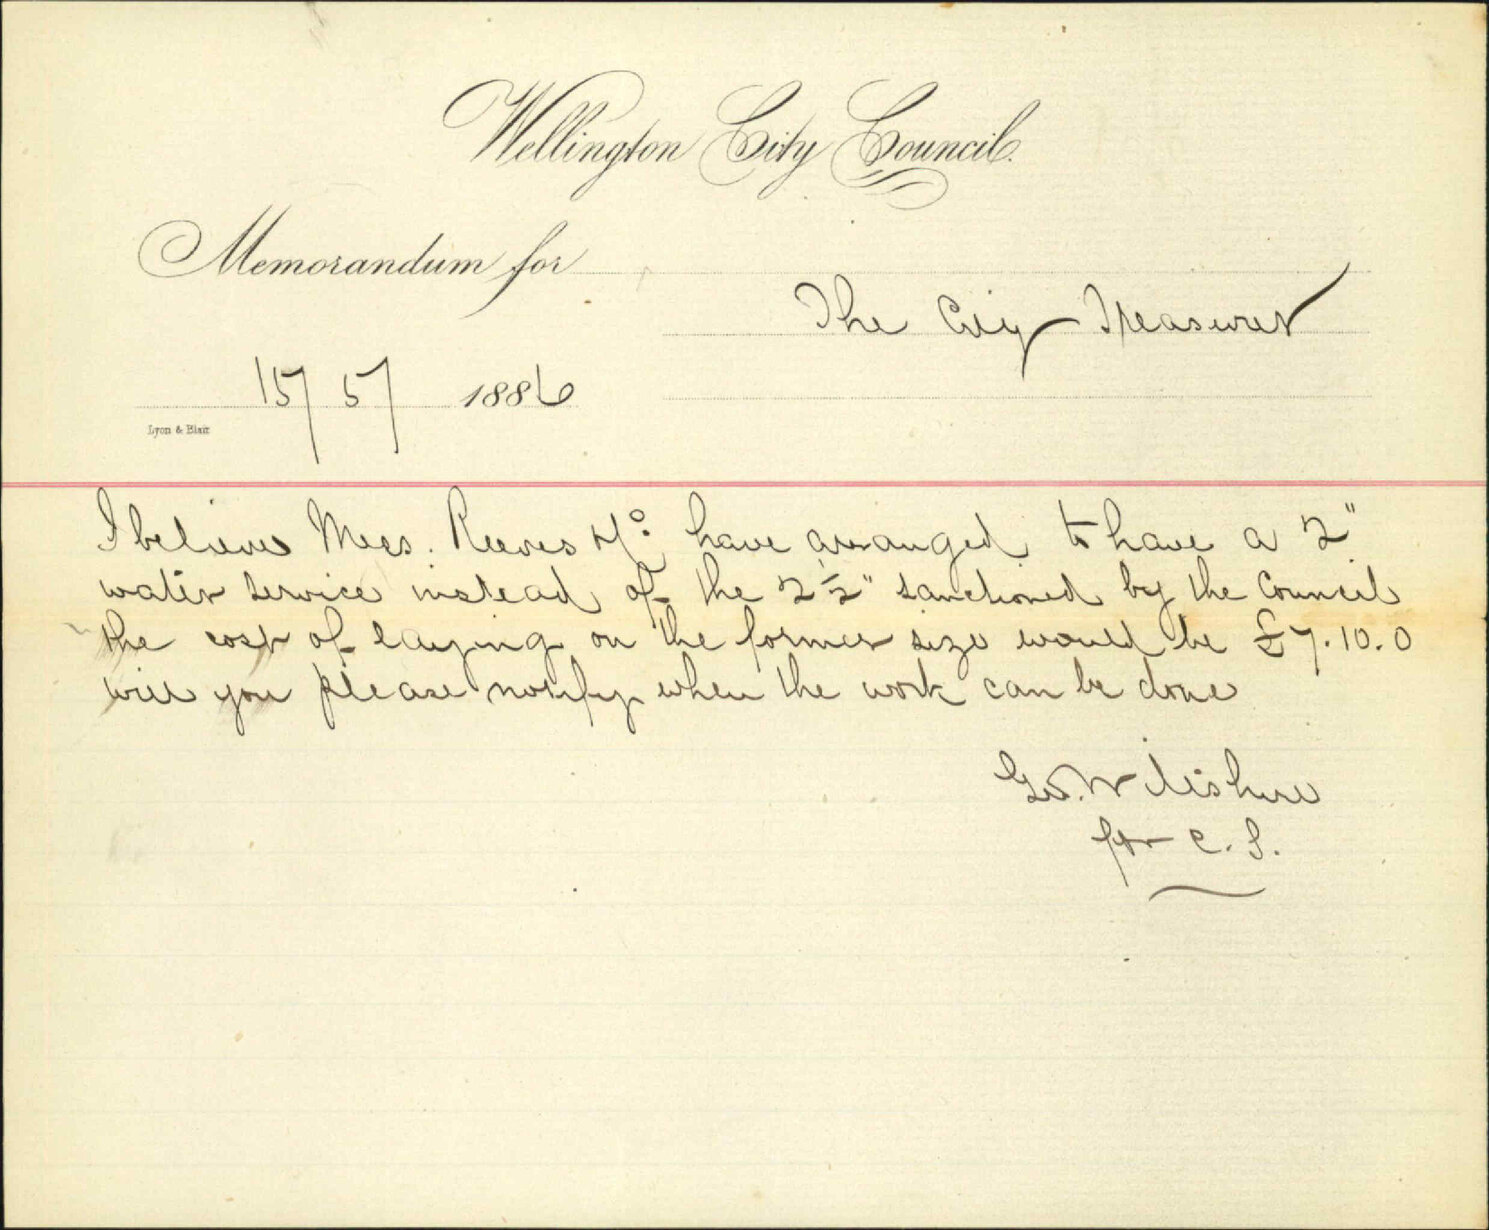 Wellington City Council.
Memorandum for
The City Treasurer
15/5/ 1886
Lyon & Blair
I believe Mess. Reeves & Co have arranged to have a 2"
water service instead of the 2½" sanctioned by the Council
the cost of laying on the former size would be £7.10.0
will you please notify when the work can be done
Geo. Wiltshire
for C. S.